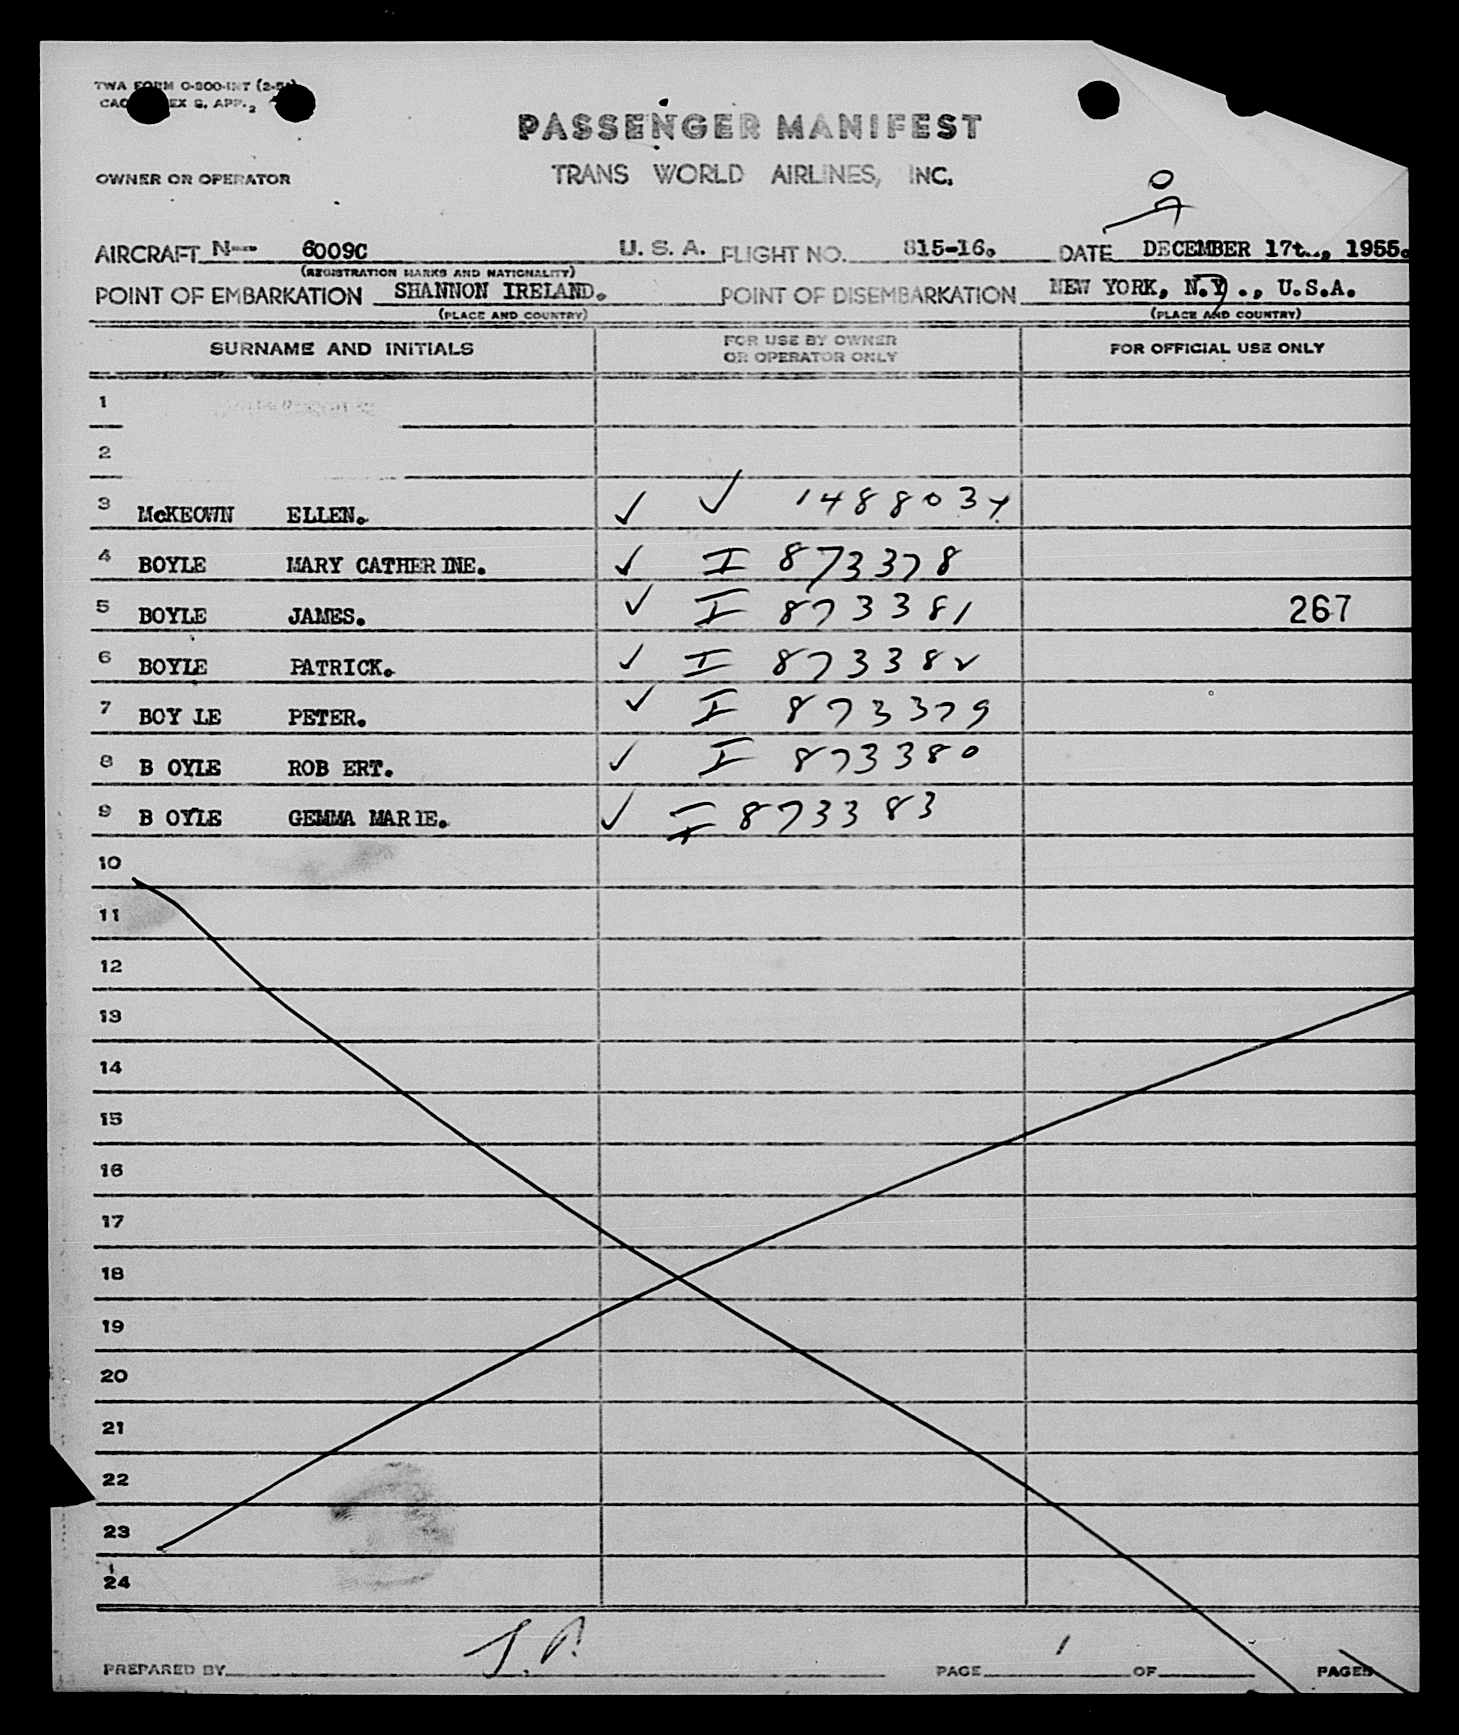 TWA FORM O-800-INT
CAO EX 9, APP. 2
PASSENGER MANIFEST
OWNER OR OPERATOR TRANS WORLD AIRLINES, INC.
AIRCRAFT N-- 6009C U. S. A. FLIGHT NO. 815-16. DATE DECEMBER 17t., 1955.
(REGISTRATION MARKS AND NATIONALITY)
POINT OF EMBARKATION SHANNON IRELAND. POINT OF DISEMBARKATION NEW YORK, N.Y ., U.S.A.
(PLACE AND COUNTRY) (PLACE AND COUNTRY)
SURNAME AND INITIALS FOR USE BY OWNER OR OPERATOR ONLY FOR OFFICIAL USE ONLY
1
2
3 McKEOWN ELLEN. ✓ ✓ 1488034
4 BOYLE MARY CATHERINE. ✓ I 873378
5 BOYLE JAMES. ✓ I 873381 267
6 BOYLE PATRICK. ✓ I 873382
7 BOY LE PETER. ✓ I 873379
8 B OYLE ROB ERT. ✓ I 873380
9 B OYLE GEMMA MARIE. ✓ I 873383
10
11
12
13
14
15
16
17
18
19
20
21
22
23
24
PREPARED BY PAGE 1 OF PAGES